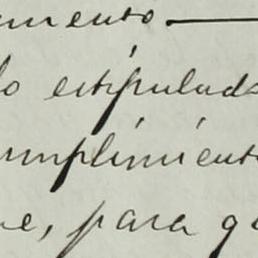 miento
lo estipulado
umplimiento
ue, para qu